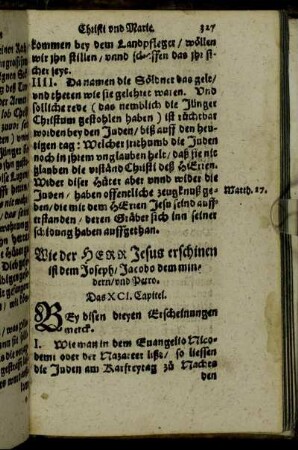 Christi vnd Marie. 327
kommen bey dem Landpfleger / wöllen
wir jhn stillen / vnnd schaffen das jhr si-
cher seyt.
IIII. Da namen die Söldner das gelt /
vnd theten wie sie gelehret waren. Vnd
solliche rede (das nemblich die Jünger
Christum gestohlen haben) ist rüchtbar
worden bey den Juden / biß auff den heu-
tigen tag: Welcher
noch in jhrem vnglauben helt / daß sie nit
glauben die vrständ Christi deß HErren.
Wider diser Hüter aber vnnd wider die
Juden / haben offentliche zeugknuß ge-
ben / die mit dem HErren Jesu seind auff-
erstanden / deren Gräber sich inn seiner
schidung haben auffgethan.
Matth. 27.
Wie der HERR Jesus erschinen
ist dem Joseph / Jacobo dem min-
dern / vnd Petro.
Das XCI. Capitel.
BEy disen dreyen Erscheinungen
merck.
I. Wie man in dem Euangelio Nico-
demi oder der Nazareer liß / so liessen
die Juden am Karfreytag zů Nachts
den